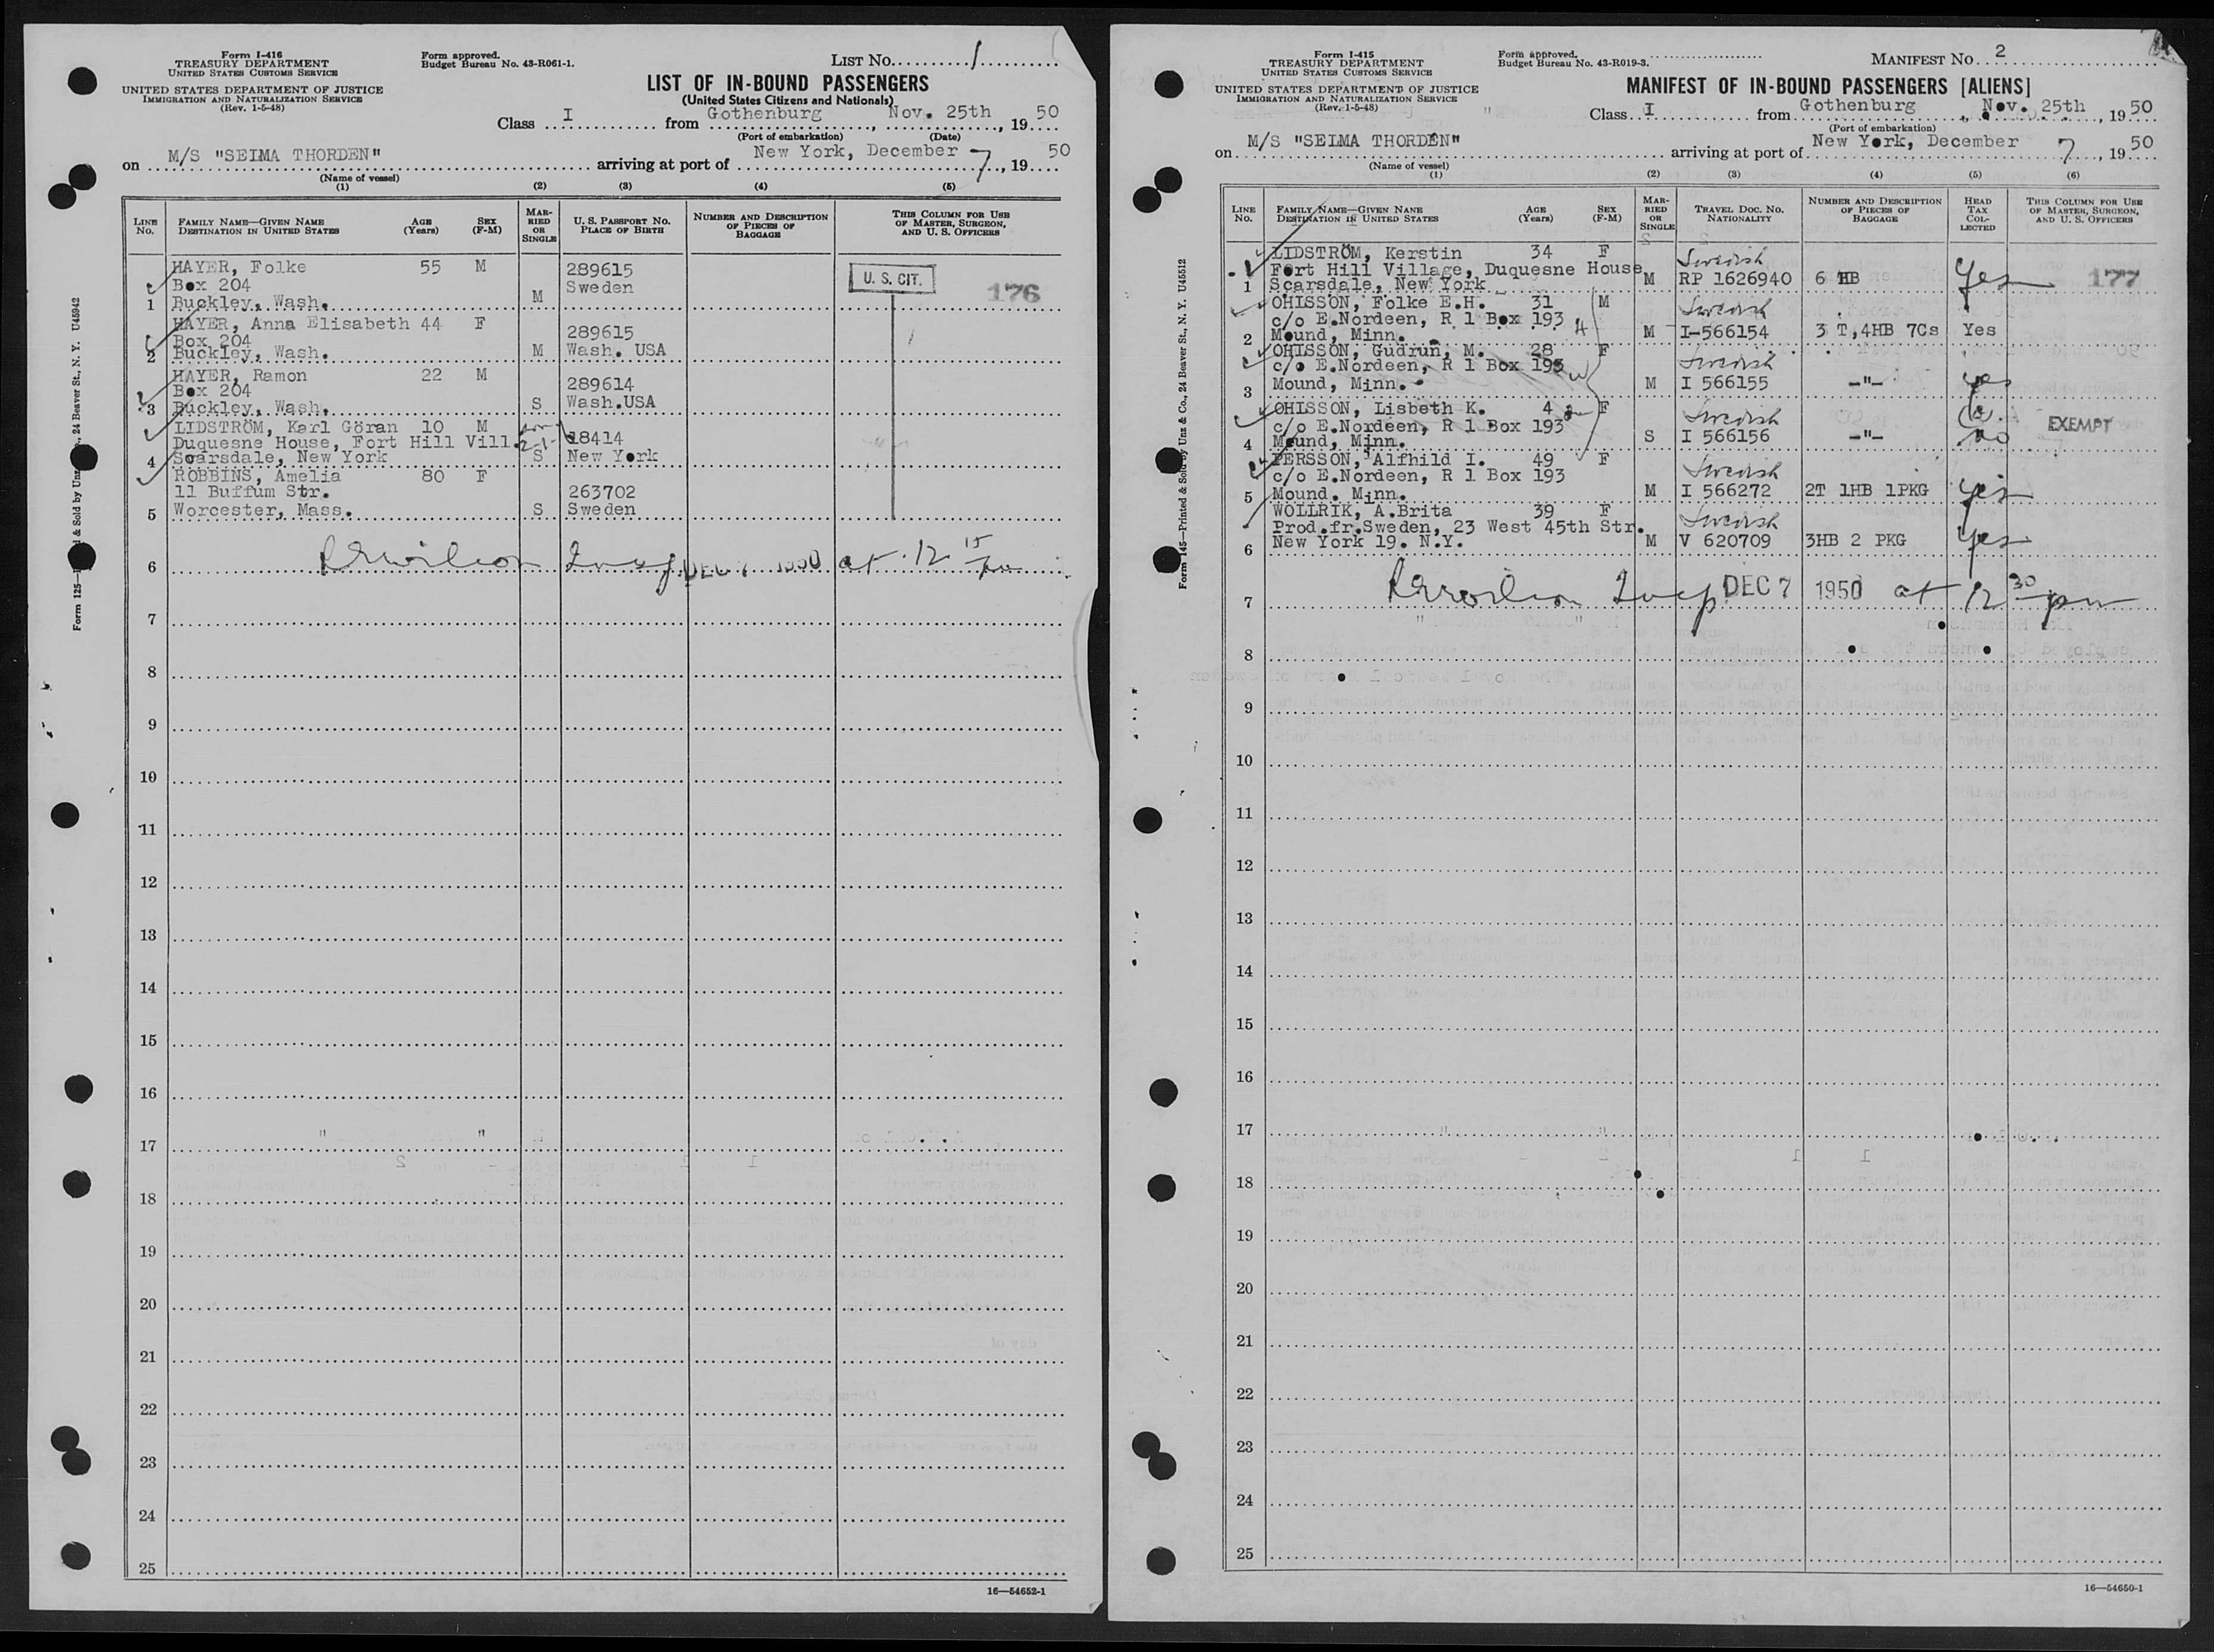 Form I-416
TREASURY DEPARTMENT
UNITED STATES CUSTOMS SERVICE
UNITED STATES DEPARTMENT OF JUSTICE
IMMIGRATION AND NATURALIZATION SERVICE
(Rev. 1-5-48)
Form approved.
Budget Bureau No. 43-R061-1.
LIST NO. 1
LIST OF IN-BOUND PASSENGERS
(United States Citizens and Nationals)
Class I from Gothenburg, Nov. 25th, 1950
(Port of embarkation) (Date)
on M/S "SEIMA THORDEN" arriving at port of New York, December 7, 1950
(Name of vessel)
(1) (2) (3) (4) (5)
LINE No. FAMILY NAME—GIVEN NAME DESTINATION IN UNITED STATES AGE (Years) SEX (F-M) MARRIED OR SINGLE U. S. PASSPORT NO. PLACE OF BIRTH NUMBER AND DESCRIPTION OF PIECES OF BAGGAGE THIS COLUMN FOR USE OF MASTER, SURGEON, AND U. S. OFFICERS
HAYER, Folke 55 M 289615 U. S. CIT. 176
Box 204 Sweden
1 Buckley, Wash. M
HAYER, Anna Elisabeth 44 F 289615
Box 204
2 Buckley, Wash. M Wash. USA
HAYER, Ramon 22 M 289614
Box 204
3 Buckley, Wash. S Wash.USA
LIDSTRÖM, Karl Göran 10 M
Duquesne House, Fort Hill Vill. 18414
4 Scarsdale, New York S New York
ROBBINS, Amelia 80 F
11 Buffum Str. 263702
5 Worcester, Mass. S Sweden
6 DEC 7 1950 at 12 15 pm
7
8
9
10
11
12
13
14
15
16
17
18
19
20
21
22
23
24
25
16—54652-1
Form I-415
TREASURY DEPARTMENT
UNITED STATES CUSTOMS SERVICE
UNITED STATES DEPARTMENT OF JUSTICE
IMMIGRATION AND NATURALIZATION SERVICE
(Rev. 1-5-48)
Form approved.
Budget Bureau No. 43-R019-3.
MANIFEST NO. 2
MANIFEST OF IN-BOUND PASSENGERS [ALIENS]
Class I from Gothenburg, Nov. 25th, 1950
(Port of embarkation)
on M/S "SEIMA THORDEN" arriving at port of New York, December 7, 1950
(Name of vessel)
(1) (2) (3) (4) (5) (6)
LINE No. FAMILY NAME—GIVEN NANE DESTINATION IN UNITED STATES AGE (Years) SEX (F-M) MARRIED OR SINGLE TRAVEL DOC. NO. NATIONALITY NUMBER AND DESCRIPTION OF PIECES OF BAGGAGE HEAD TAX COLLECTED THIS COLUMN FOR USE OF MASTER, SURGEON, AND U. S. OFFICERS
LIDSTRÖM, Kerstin 34 F Swedish
Fort Hill Village, Duquesne House
1 Scarsdale, New York M RP 1626940 6 HB Yes 177
OHISSON, Folke E.H. 31 M Swedish
c/o E.Nordeen, R 1 Box 193
2 Mound, Minn. M I-566154 3 T,4HB 7Cs Yes
OHISSON, Gudrun, M. 28 F Swedish
c/o E.Nordeen, R 1 Box 193
3 Mound, Minn. M I 566155 -"- yes
OHISSON, Lisbeth K. 4 F Swedish
c/o E.Nordeen, R 1 Box 193 EXEMPT
4 Mound, Minn. S I 566156 -"- no
PERSSON, Alfhild I. 49 F Swedish
c/o E.Nordeen, R 1 Box 193
5 Mound. Minn. M I 566272 2T 1HB 1PKG yes
WOLLRIK, A.Brita 39 F Swedish
Prod.fr.Sweden, 23 West 45th Str.
6 New York 19. N.Y. M V 620709 3HB 2 PKG yes
7 DEC 7 1950 at 12 30 pm
8
9
10
11
12
13
14
15
16
17
18
19
20
21
22
23
24
25
16—54650-1
Form 145—Printed & Sold by Unz & Co., 24 Beaver St., N. Y. U45512